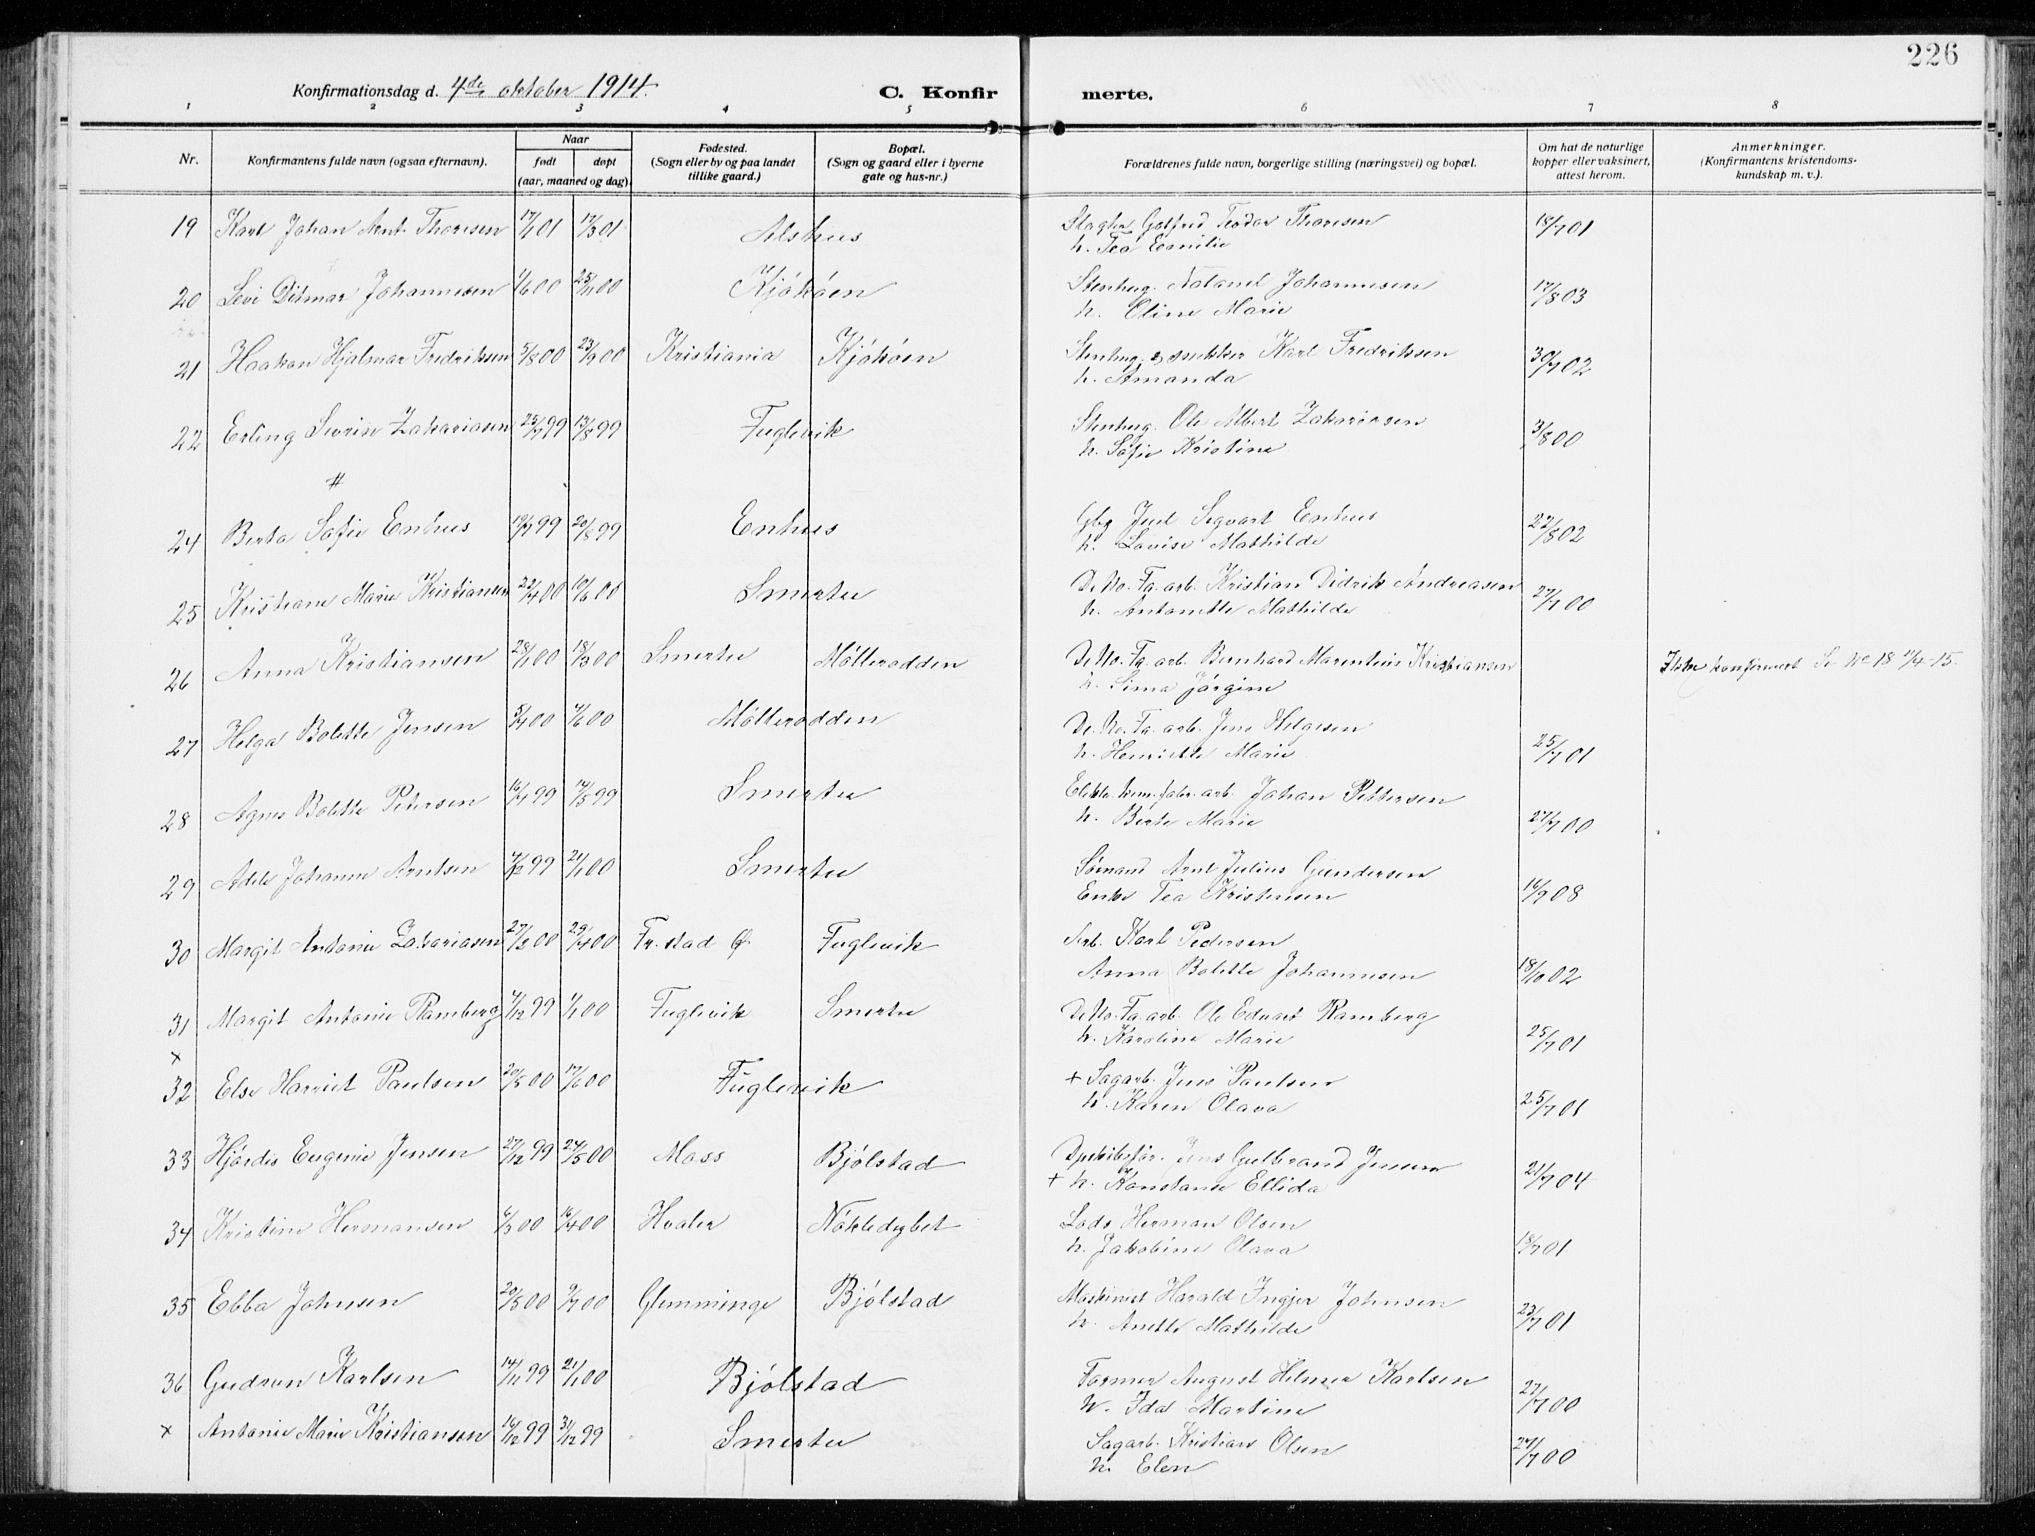 226
Konfirmationsdag d. 4de oktober 1914.
C. Konfirmerte.
1 2 3 4 5 6 7 8
Nr.
Konfirmantens fulde navn (ogsaa efternavn).
Naar
født døpt
(aar, maaned og dag)
Fødested.
(Sogn eller by og paa landet
tillike gaard.)
Bopæl.
(Sogn og gaard eller i byerne
gate og hus-nr.)
Forældrenes fulde navn, borgerlige stilling (næringsvei) og bopæl.
Om hat de naturlige
kopper eller vaksinert,
attest herom.
Anmerkninger.
(Konfirmantens kristendoms-
kundskap m. v.).
19 Karl Johan Arnt Thoresen 17/1 01 17/3 01 Alshus Slagter Gotfred Teodor Thoresen 18/7 01
h. Tea Emilie
20 Levi Ditmar Johannesen 1/6 00 25/11 00 Kjøkøen Stenhug. Natanel Johannesen 17/8 03
h. Oline Marie
21 Haakon Hjalmar Fredriksen 5/8 00 23/9 00 Kristiania Kjøkøen Stenhug. & snekker Karl Fredriksen 30/7 02
h. Amanda
22 Erling Severin Zakariasen 25/7 99 13/8 99 Fuglevik Stenhug. Ole Albert Zakariasen 3/8 00
h. Sofie Kristine
#
24 Berta Sofie Enhus 19/7 99 20/8 99 Enhus Gbg Juul Sigvart Enhus 22/8 02
h. Lovise Mathilde
25 Kristiane Marie Kristiansen 22/4 00 10/6 00 Smertu De No. Fa. arb. Kristian Didrik Andreasen 27/7 00
h. Antonette Mathilde
26 Anna Kristiansen 28/1 00 18/3 00 Smertu Møllerodden De No. Fa. arb. Bernhard Marentius Kristiansen Ikke konfirmert Se No 18 11/4-15.
h. Lima Jørgine
27 Helga Bolette Jensen 5/4 00 4/6 00 Møllerodden De. No. Fa. arb. Jens Helgesen 25/7 01
h. Henriette Marie
28 Agnes Bolette Petersen 16/4 99 14/5 99 Smertu Elektr. kem. fabr. arb. Johan Pettersen 27/7 00
h. Berte Marie
29 Adele Johanne Arntsen 4/12 99 21/1 00 Smertu Sømand Arnt Julius Gundersen 16/9 08
Enke Tea Kristensen
30 Margit Antonie Zakariasen 27/2 00 29/4 00 Fr. stad Ø. Fuglevik Arb. Karl Pedersen
Anna Bolette Johannesen 18/10 02
31 Margit Antonie Ramberg 4/12 99 1/1 00 Fuglevik Smertu De No. Fa. arb. Ole Edvart Ramberg 25/7 01
h. Karoline Marie
x
32 Else Harriet Paulsen 20/5 00 17/6 00 Fuglevik + Sagarb. Jens Paulsen
h. Karen Olava 25/7 01
33 Hjørdis Eugenie Jensen 27/12 99 24/5 00 Moss Bjølstad Jens Gulbrand Jensen 21/7 04
+ h. Konstanse Ellida
34 Kristine Hermansen 6/3 00 16/4 00 Hvaler Nøkledybet Lods Herman Olsen
h. Jakobine Olava 18/7 01
35 Ebba Johnsen 20/5 00 9/7 00 Glemminge Bjølstad Maskinist Harald Ingjer Johnsen 23/7 01
h. Anette Mathilde
36 Gudrun Karlsen 14/11 99 21/1 00 Bjølstad Former August Helmer Karlsen 27/7 00
h. Ida Martine
x Antonie Marie Kristiansen 16/12 99 31/12 99 Smertu Sagarb. Kristian Olsen 27/7 00
h. Elen